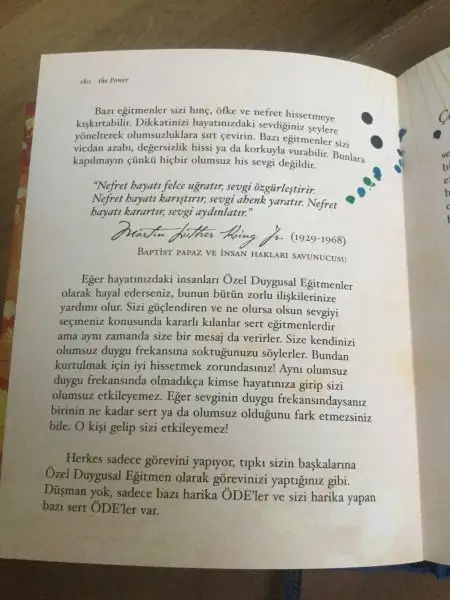 180 the Power
Bazı eğitmenler sizi hınç, öfke ve nefret hissetmeye
kışkırtabilir. Dikkatinizi hayatınızdaki sevdiğiniz şeylere
yönelterek olumsuzluklara sırt çevirin. Bazı eğitmenler sizi
vicdan azabı, değersizlik hissi ya da korkuyla vurabilir. Bunlara
kapılmayın çünkü hiçbir olumsuz his sevgi değildir.
"Nefret hayatı felce uğratır, sevgi özgürleştirir.
Nefret hayatı karıştırır, sevgi ahenk yaratır. Nefret
hayatı karartır, sevgi aydınlatır."
Martin Luther King Jr. (1929-1968)
BAPTİST PAPAZ VE İNSAN HAKLARI SAVUNUCUSU
Eğer hayatınızdaki insanları Özel Duygusal Eğitmenler
olarak hayal ederseniz, bunun bütün zorlu ilişkilerinize
yardımı olur. Sizi güçlendiren ve ne olursa olsun sevgiyi
seçmeniz konusunda kararlı kılanlar sert eğitmenlerdir
ama aynı zamanda size bir mesaj da verirler. Size kendinizi
olumsuz duygu frekansına soktuğunuzu söylerler. Bundan
kurtulmak için iyi hissetmek zorundasınız! Aynı olumsuz
duygu frekansında olmadıkça kimse hayatınıza girip sizi
olumsuz etkileyemez. Eğer sevginin duygu frekansındaysanız
birinin ne kadar sert ya da olumsuz olduğunu fark etmezsiniz
bile. O kişi gelip sizi etkileyemez!
Herkes sadece görevini yapıyor, tıpkı sizin başkalarına
Özel Duygusal Eğitmen olarak görevinizi yaptığınız gibi.
Düşman yok, sadece bazı harika ÖDE'ler ve sizi harika yapan
bazı sert ÖDE'ler var.